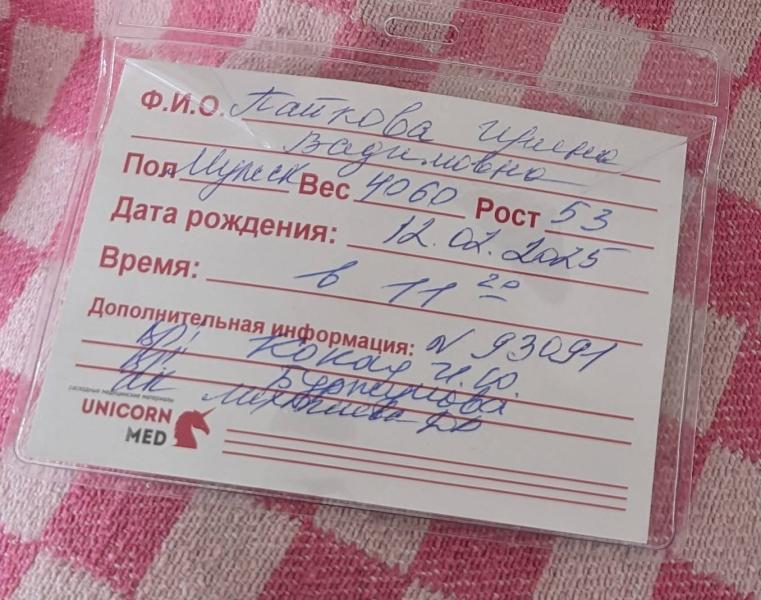 Ф.И.О. Пайкова Ирина
Вадимовна
Пол Мужск Вес 4060 Рост 53
Дата рождения: 12.02.2025
Время: в 11 20
Дополнительная информация: N 93091
Вр:
расходные медицинские материалы
UNICORN
MED